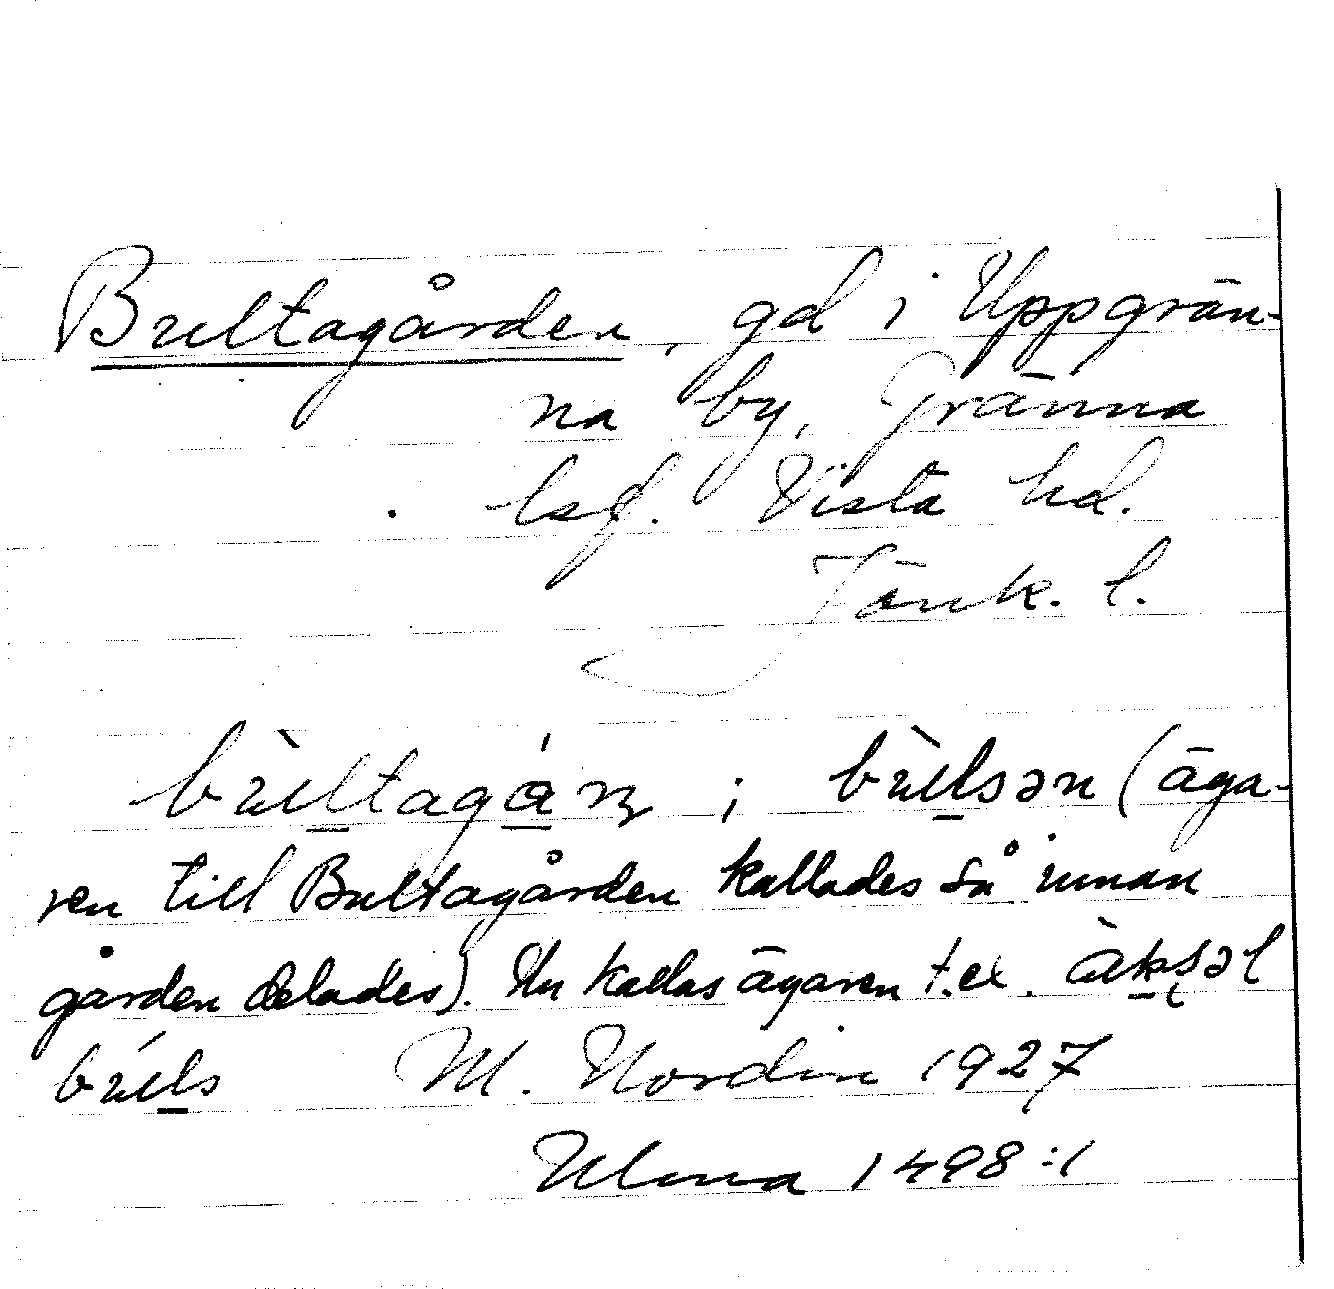 Bultagården, gd i Uppgrän-
na by, Gränna
lsf. Vista hd.
Jönk. l.
bùltagá̱ɳ ; bùlsən (äga-
ren till Bultagården kallades så innan
gården delades). Nu kallas ägaren t.ex. àkʂəl
búls M. Nordin 1927
Ulma 1498:1